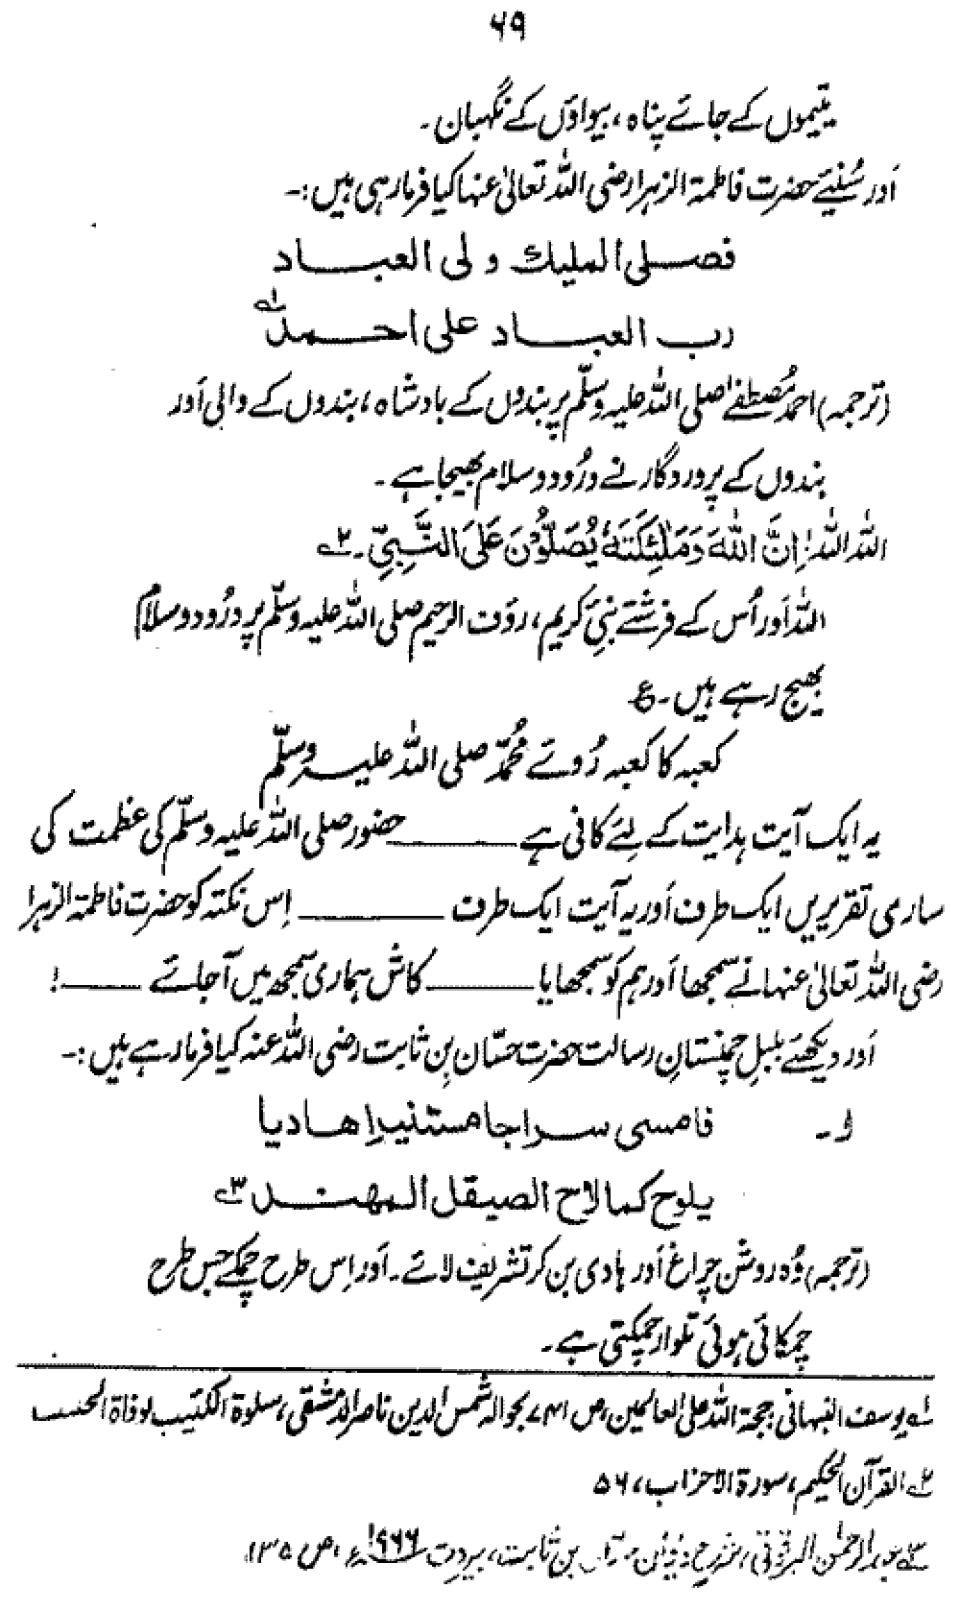 ۶۹
یتیموں کے جائے پناہ، بیواؤں کے نگہبان۔
اَور سُنیئے حضرت فاطمۃ الزہرا رضی اللہ تعالیٰ عنہا کیا فرما رہی ہیں:-
فصلی الملیك ولی العباد
رب العباد علی احمد ۱ے
(ترجمہ) احمد مُصطفےٰ صلی اللہ علیہ وسلّم پر بندوں کے بادشاہ، بندوں کے والی اَور
بندوں کے پروردگار نے درُود و سلام بھیجا ہے۔
اللہ اللہ! اِنَّ اللّٰہَ وَمَلٰٓئِکَتَہٗ یُصَلُّوْنَ عَلَی النَّبِیِّ۔ ۲ے
اللہ اَور اُس کے فرشتے نبیٔ کریم، رؤف الرحیم صلی اللہ علیہ وسلّم پر درُود و سلام
بھیج رہے ہیں۔ ع
کعبہ کا کعبہ رُوئے مُحمّد صلی اللہ علیہ وسلّم
یہ ایک آیت ہدایت کے لِئے کافی ہے ______ حضور صلی اللہ علیہ وسلّم کی عظمت کی
ساری تقریریں ایک طرف اَور یہ آیت ایک طرف ______ اِس نکتہ کو حضرت فاطمۃ الزہرا
رضی اللہ تعالیٰ عنہا نے سمجھا اَور ہم کو سمجھایا ______ کاش ہماری سمجھ میں آجائے ____ !
اَور دیکھئے بلبلِ چمنستانِ رسالت حضرت حسّان بِن ثابت رضی اللہ عنہ کیا فرما رہے ہیں:-
۱۔ فامسی سراجا مستنیرا ھادیا
یلوح کما لاح الصیقل المھند ۳ے
(ترجمہ) وُہ روشن چراغ اَور ہادی بن کر تشریف لائے۔ اَور اِس طرح چمکے جس طرح
چمکائی ہوئی تلوار چمکتی ہے۔
۱ے یوسف النبہانی: حجۃ اللہ علی العالمین، ص ۷۴۱ بحوالہ شمس الدین ناصر الدمشقی، سلوۃ الکئیب لوفاۃ الحبیب
۲ے القرآن الحکیم، سورۃ الاحزاب، ۵۶
۳ے عبد الرحمٰن البرقوقی، شرح دیوان حسّان بن ثابت، بیروت ۱۹۶۶ء، ص ۱۳۵